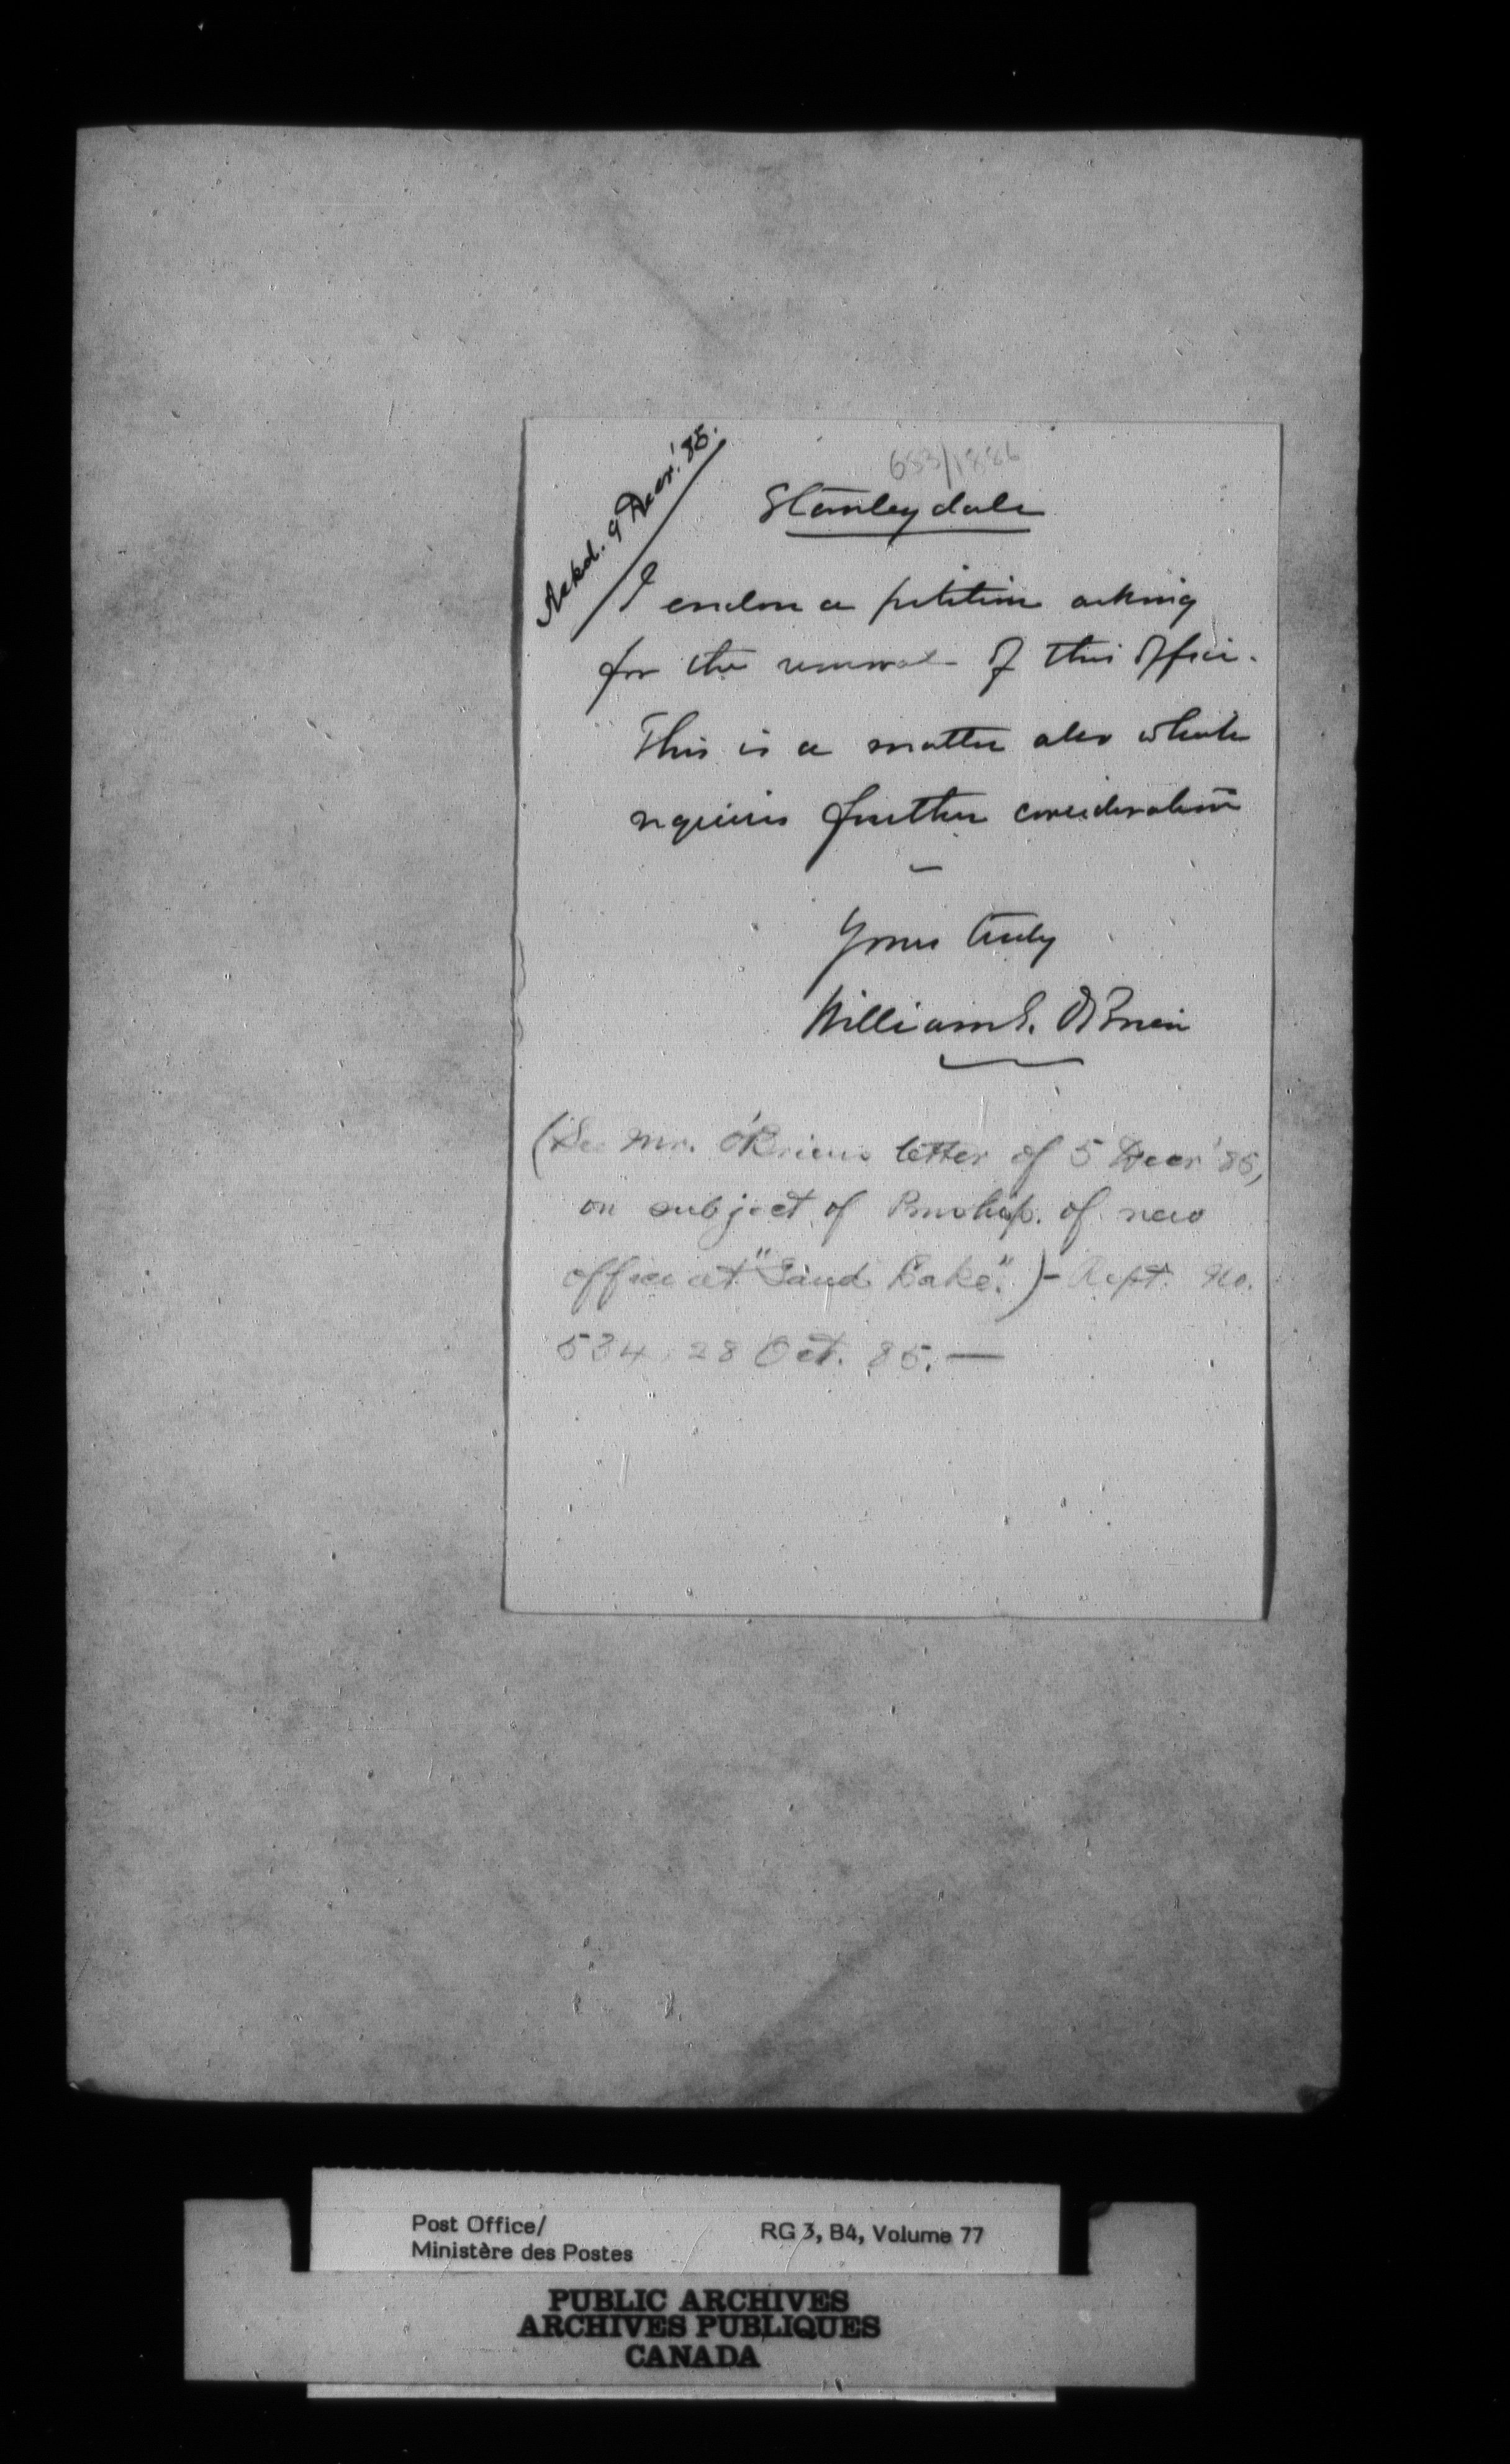 653/1886
Ackd. 9 Decr. '85.
Stanleydale
I enclose a petition asking
for the removal of this office.
This is a matter also which
requires further consideration
Yours truly
William E. O'Brien
(See Mr. O'Briens letter of 5 Decr '85,
on subject of Pmship. of new
office at "Sand Lake".) – Rept. No.
534, 28 Oct. 85. —
Post Office/
Ministère des Postes
RG 3, B4, Volume 77
PUBLIC ARCHIVES
ARCHIVES PUBLIQUES
CANADA